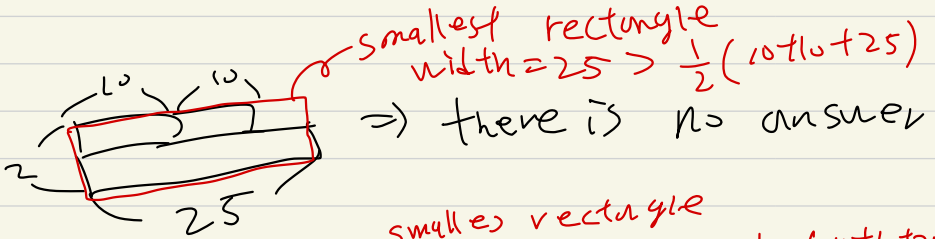 smallest rectangle
width = 25 > 1/2 (10+10+25)
10 10
⇒ there is no answer
2
25
smalles rectangle